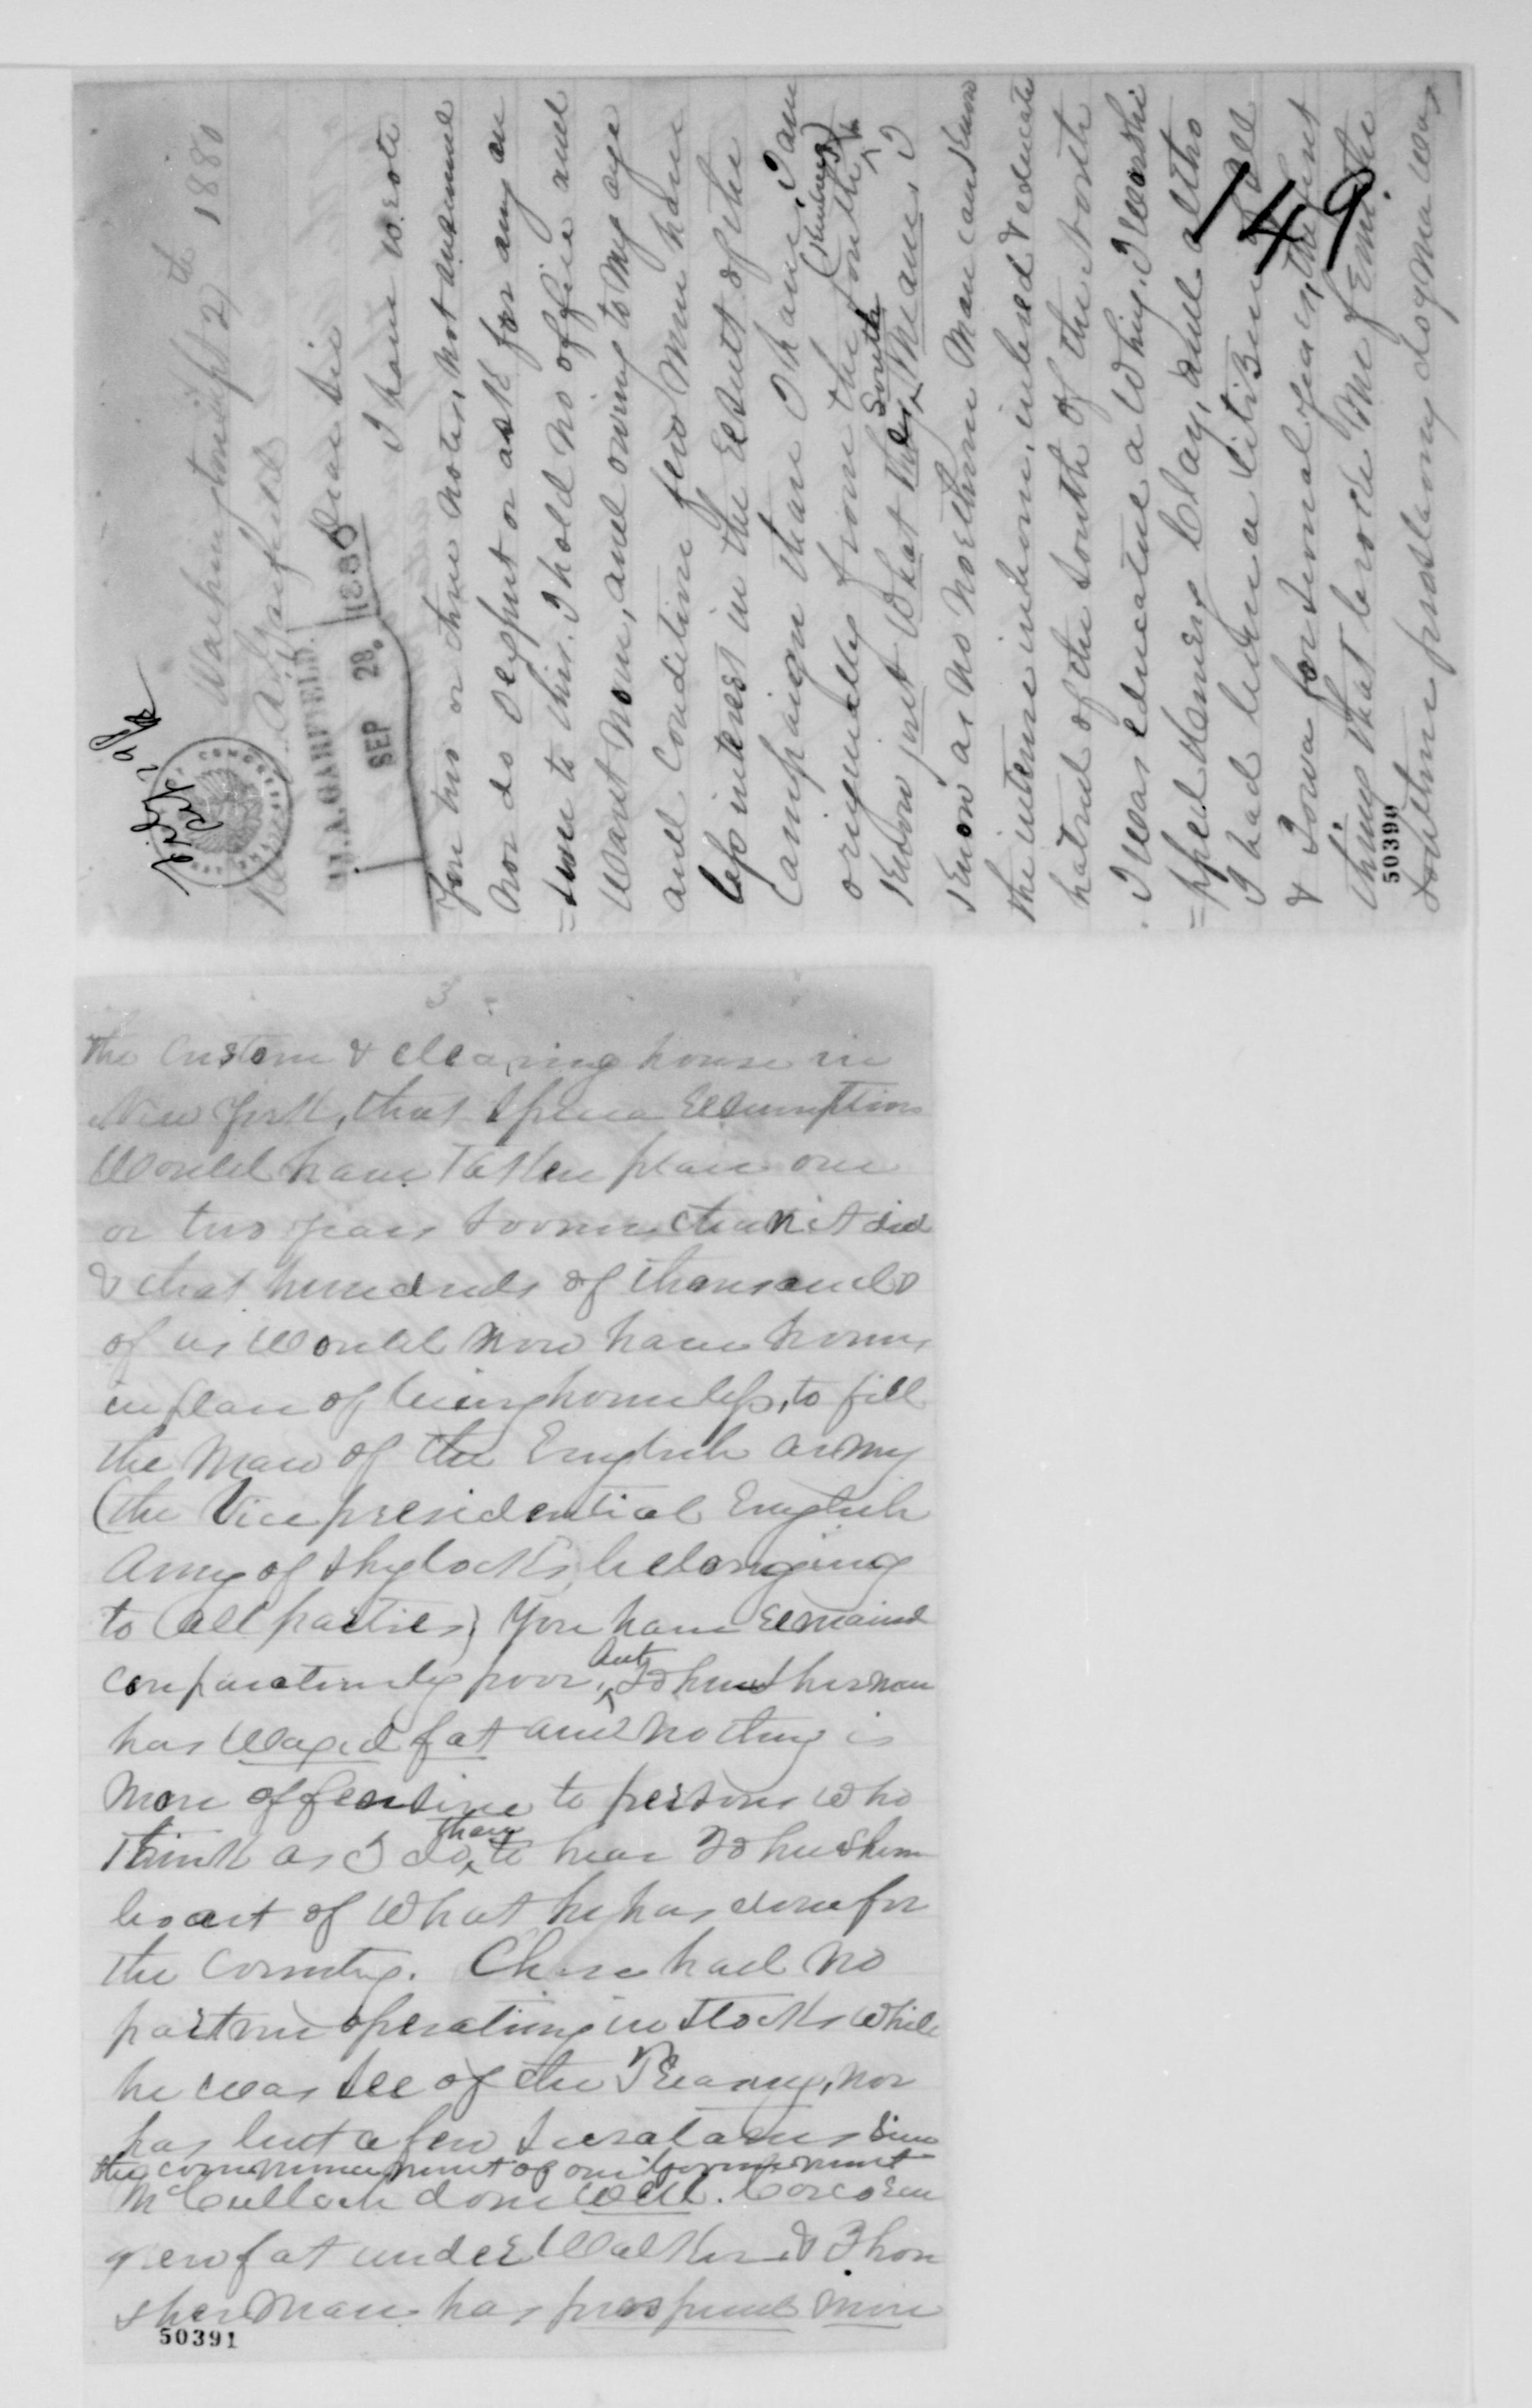 Washington Sept 27th 1880
Hon J. A. Garfield
Dear Sir
J. A. GARFIELD.
SEP 28. 1880
149
I have wrote
You two or three notes, not answered
nor do I expect or ask for any an
=swer to this. I hold no office and
want none, and owing to my age
and condition few men have
less interest in the result of the
Campaign than I have, I am
originally from the South
know just what the South means I
know as no Northern man can know
the intense inborn, inbred & educated
hatred of the South of the North
I was educated a Whig, I worshi
=pped Henry Clay, and altho
I had been a citizen of Ill
& Iowa for several years, the first
thing that broke me from the
Southern proslavery dogma was
50390
the Custom & clearing house in
New York, that specie resumption
would have taken place one
or two years sooner than it did
& that hundreds of thousands
of us would now have homes
in place of being homeless, to fill
the maw of the English army
(the Vice presidential English
Army of Shylocks belonging
to all parties) You have remained
comparatively poor, but John Sherman
has waxed fat and nothing is
more offensive to persons who
think as I do, than to hear John Sherm
boast of what he has done for
the country. Chase had no
partner operating in stocks while
he was Sec of the Treasury, nor
has but a few Secretaries since
the commencement of our Government
McCulloch done well. Corcoran
grew fat under Walker & Jhon
Sherman has prospered more
50391